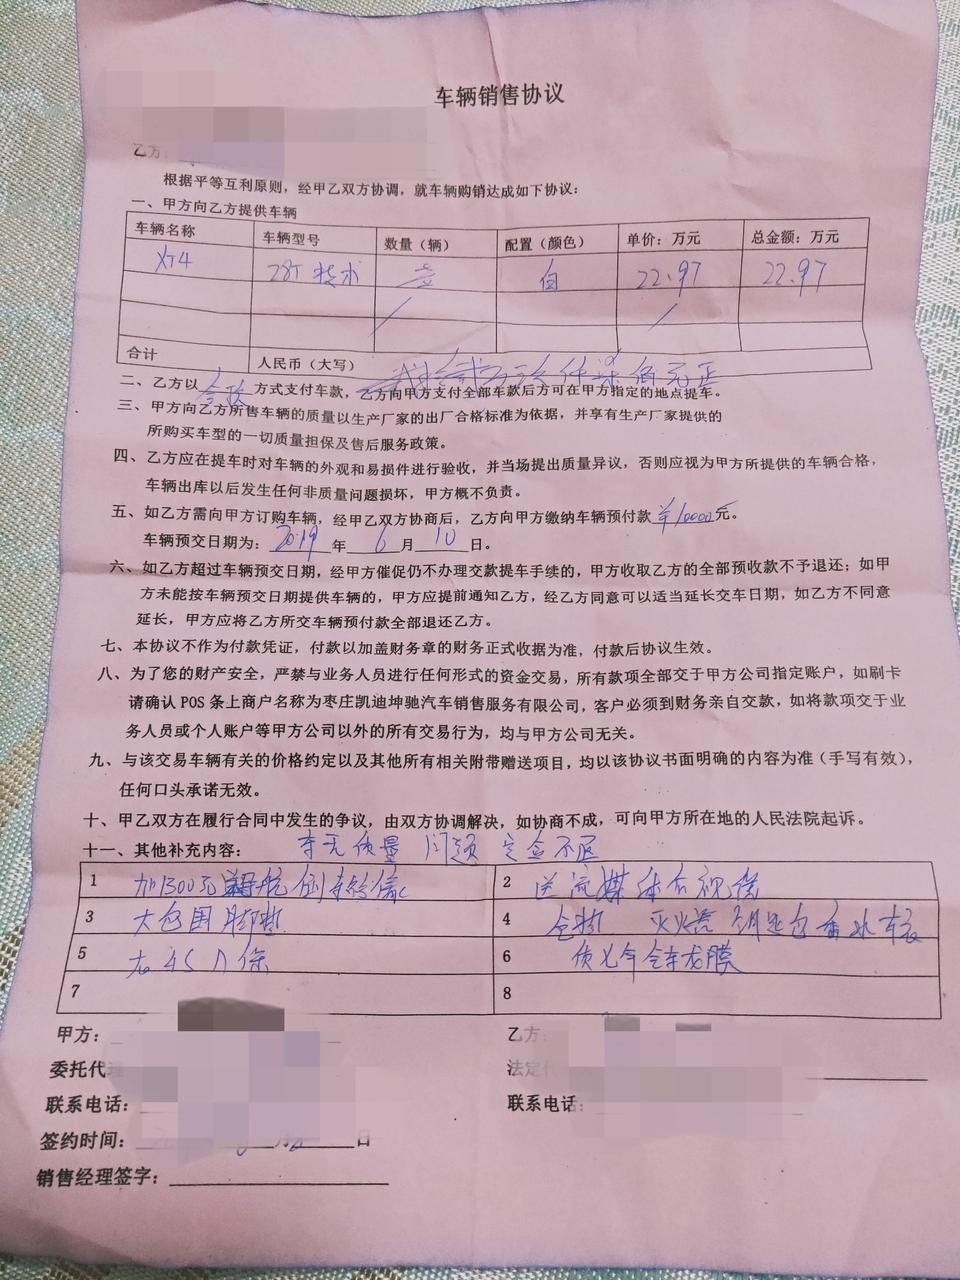 车辆销售协议
乙方:
根据平等互利原则，经甲乙双方协调，就车辆购销达成如下协议：
一、甲方向乙方提供车辆
车辆名称 车辆型号 数量（辆） 配置（颜色） 单价：万元 总金额：万元
XT4 28T 技术 壹 白 22.97 22.97
合计 人民币（大写） 贰拾贰万玖仟柒佰元正
二、乙方以 全款 方式支付车款，乙方向甲方支付全部车款后方可在甲方指定的地点提车。
三、甲方向乙方所售车辆的质量以生产厂家的出厂合格标准为依据，并享有生产厂家提供的
所购买车型的一切质量担保及售后服务政策。
四、乙方应在提车时对车辆的外观和易损件进行验收，并当场提出质量异议，否则应视为甲方所提供的车辆合格，
车辆出库以后发生任何非质量问题损坏，甲方概不负责。
五、如乙方需向甲方订购车辆，经甲乙双方协商后，乙方向甲方缴纳车辆预付款 ￥10000 元。
车辆预交日期为： 2019 年 6 月 10 日。
六、如乙方超过车辆预交日期，经甲方催促仍不办理交款提车手续的，甲方收取乙方的全部预收款不予退还；如甲
方未能按车辆预交日期提供车辆的，甲方应提前通知乙方，经乙方同意可以适当延长交车日期，如乙方不同意
延长，甲方应将乙方所交车辆预付款全部退还乙方。
七、本协议不作为付款凭证，付款以加盖财务章的财务正式收据为准，付款后协议生效。
八、为了您的财产安全，严禁与业务人员进行任何形式的资金交易，所有款项全部交于甲方公司指定账户，如刷卡
请确认 POS 条上商户名称为枣庄凯迪坤驰汽车销售服务有限公司，客户必须到财务亲自交款，如将款项交于业
务人员或个人账户等甲方公司以外的所有交易行为，均与甲方公司无关。
九、与该交易车辆有关的价格约定以及其他所有相关附带赠送项目，均以该协议书面明确的内容为准（手写有效），
任何口头承诺无效。
十、甲乙双方在履行合同中发生的争议，由双方协调解决，如协商不成，可向甲方所在地的人民法院起诉。
十一、其他补充内容： 车无质量问题 定金不退
1 加1300元 导航 倒车影像 2 送流媒体后视镜
3 大包围脚垫 4 全物 灭火器 钥匙包 香水 车衣
5 6 全车龙膜
7 8
甲方： 乙方:
委托代理
联系电话： 联系电话:
签约时间： 月 日
销售经理签字：